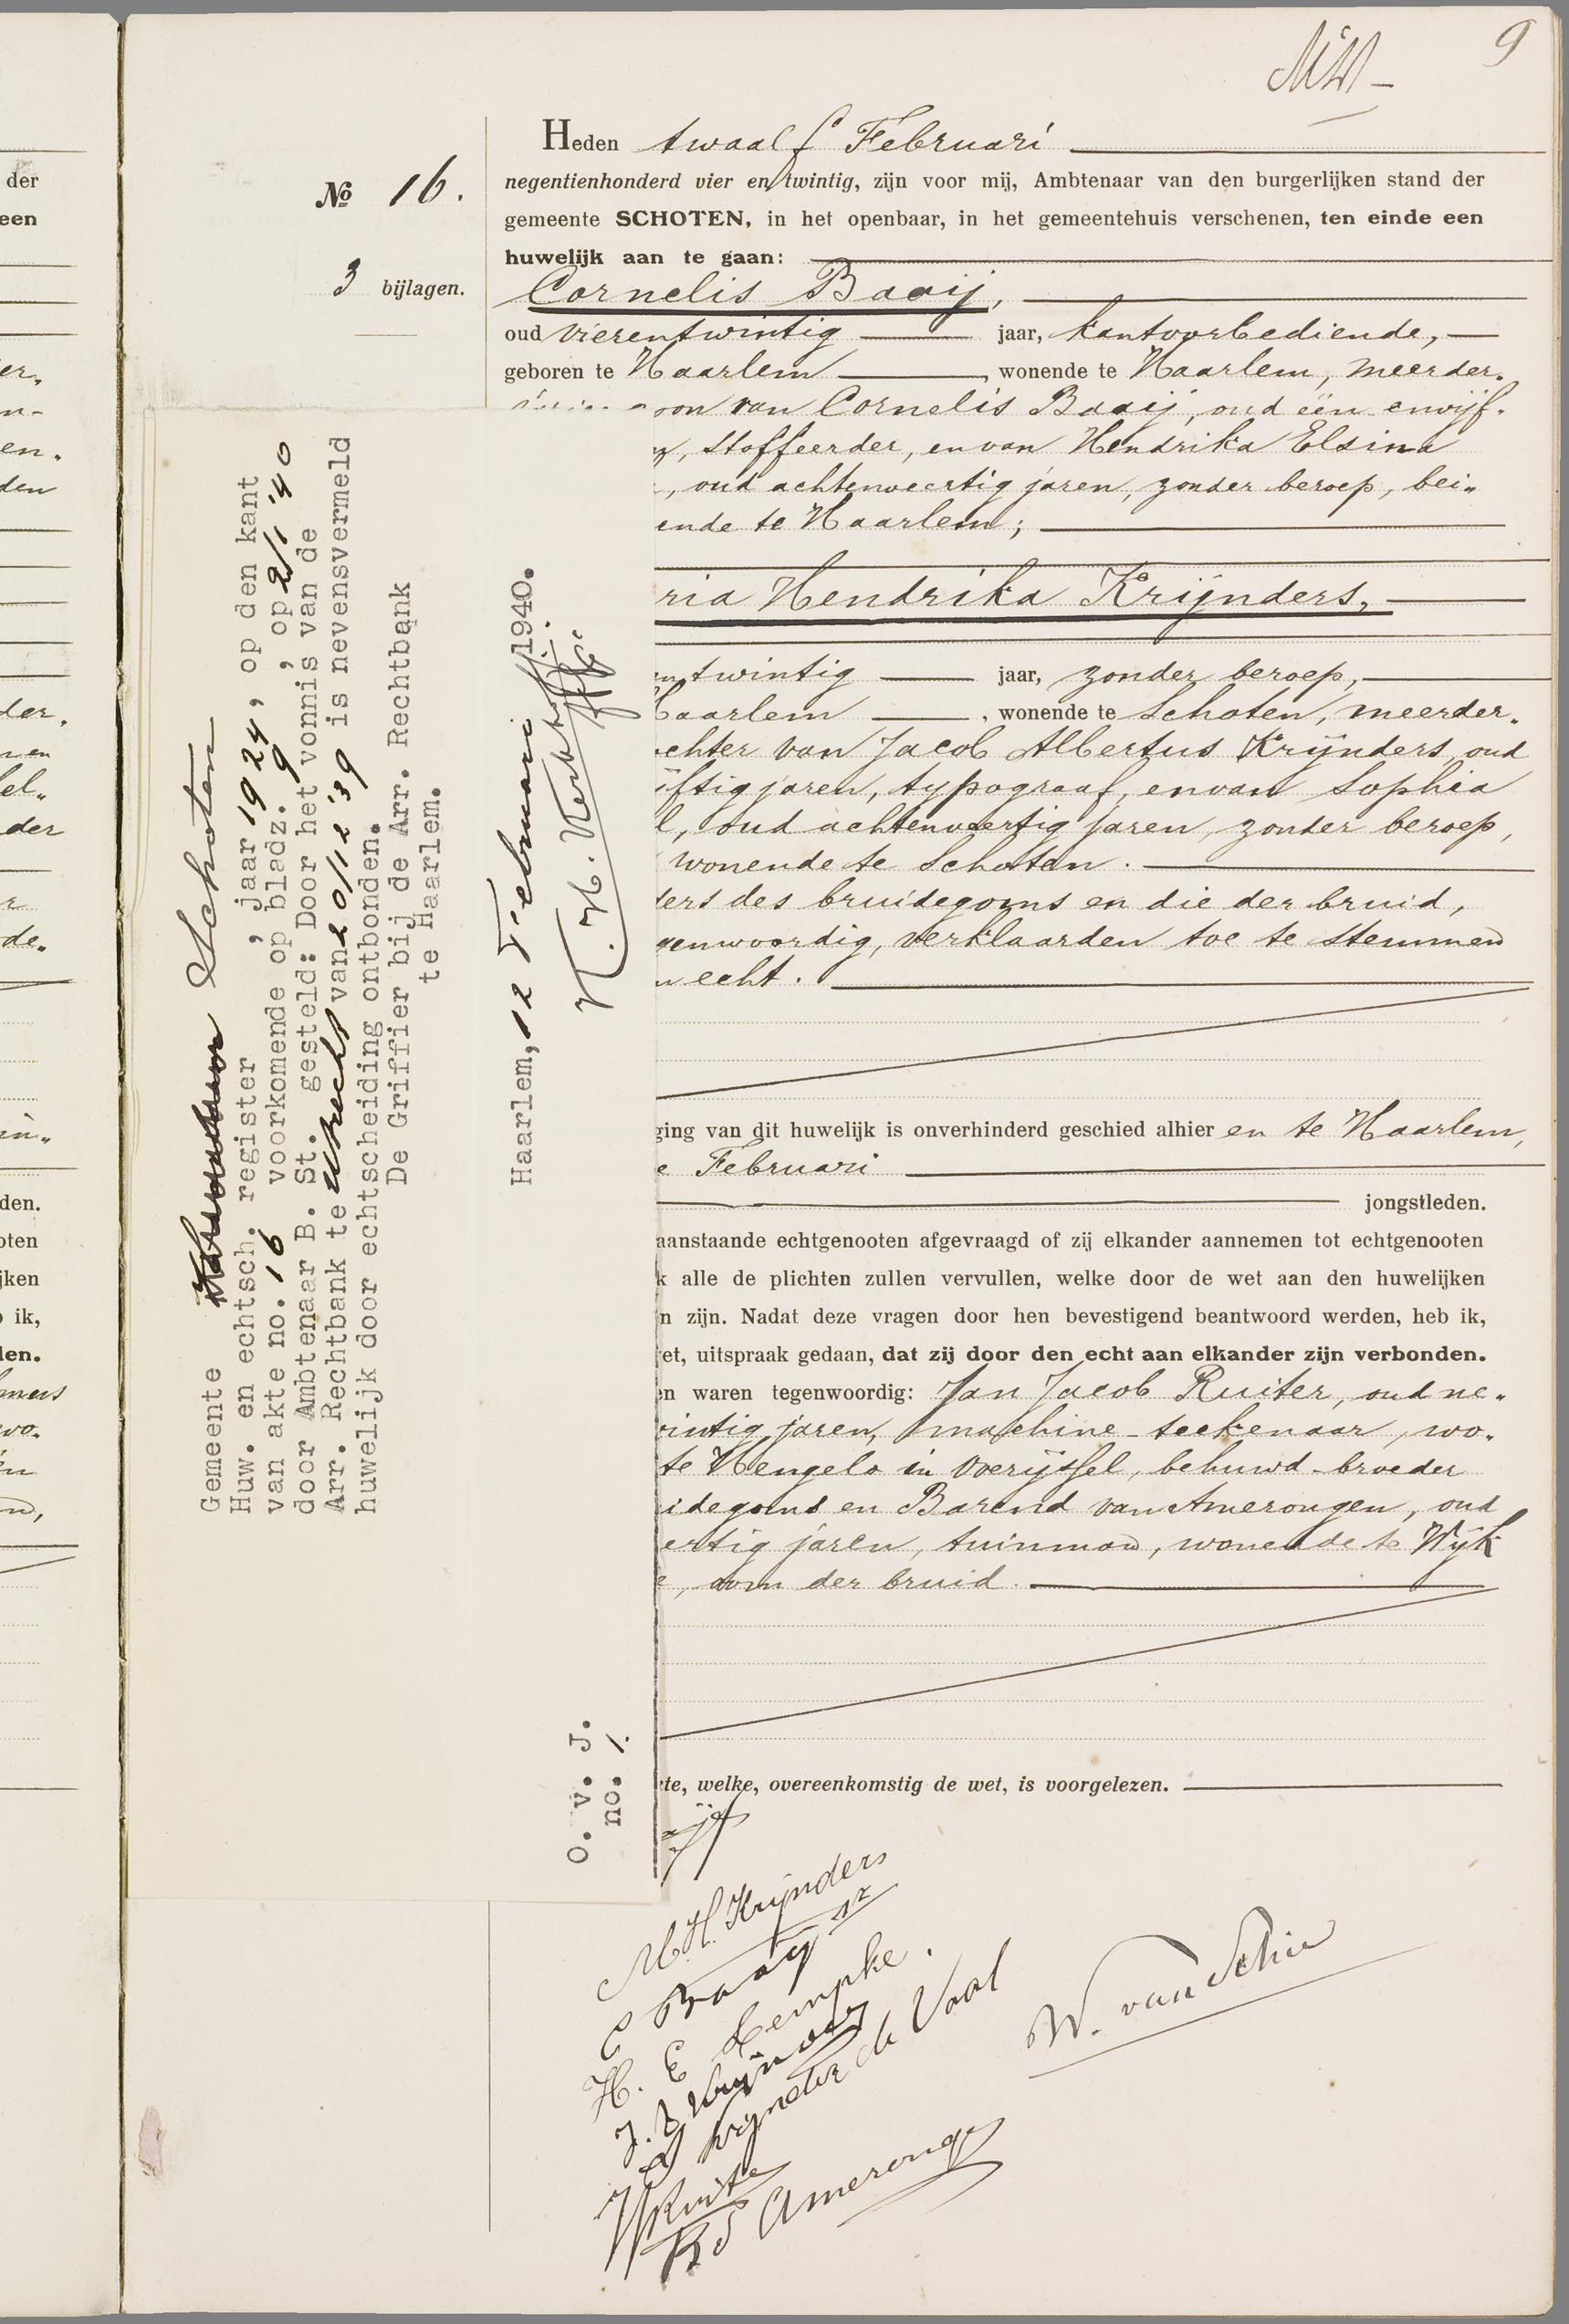 9
Heden twaalf Februari
negentienhonderd vier en twintig, zijn voor mij, Ambtenaar van den burgerlijken stand der
gemeente SCHOTEN, in het openbaar, in het gemeentehuis verschenen, ten einde een
huwelijk aan te gaan:
No 16.
3 bijlagen.
Cornelis Baaij,
oud vierentwintig jaar, kantoorbediende,
geboren te Haarlem, wonende te Haarlem, meerder-
zoon van Cornelis Baaij, oud één en vijf-
, stoffeerder, en van Hendrika Elsina
, oud achtenveertig jaren, zonder beroep, bei-
ende te Haarlem;
ria Hendrika Krijnders,
entwintig jaar, zonder beroep,
aarlem, wonende te Schoten, meerder-
chter van Jacob Albertus Krijnders, oud
ijftig jaren, typograaf, en van Sophia
l, oud achtenveertig jaren, zonder beroep,
wonende te Schoten.
ders des bruidegoms en die der bruid,
genwoordig, verklaarden toe te stemmen
n echt.
ging van dit huwelijk is onverhinderd geschied alhier en te Haarlem,
e Februari
jongstleden.
aanstaande echtgenooten afgevraagd of zij elkander aannemen tot echtgenooten
k alle de plichten zullen vervullen, welke door de wet aan den huwelijken
n zijn. Nadat deze vragen door hen bevestigend beantwoord werden, heb ik,
et, uitspraak gedaan, dat zij door den echt aan elkander zijn verbonden.
en waren tegenwoordig: Jan Jacob Ruiter, oud ne-
wintig jaren, machine-teekenaar, wo-
te Hengelo in Overijssel, behuwd-broeder
idegoms en Barend van Amerongen, oud
ertig jaren, tuinman, wonende te Wijk
e, oom der bruid.
te, welke, overeenkomstig de wet, is voorgelezen.
aij
M H Krijnders
C Baaij Sr
H. E Lempke.
J. A Krijnders
S Krijnders de Vaal
JJ Ruiter
B v Amerongen
W. van Schie
Gemeente Schoten
Huw. en echtsch. register, jaar 1924, op den kant
van akte no. 16 voorkomende op bladz. 9, op 2/1 '40
door Ambtenaar B. St. gesteld: Door het vonnis van de
Arr. Rechtbank te Utrecht van 20/12 '39 is nevensvermeld
huwelijk door echtscheiding ontbonden.
De Griffier bij de Arr. Rechtbank
te Haarlem.
Haarlem, 12 Februari 1940.
O. v. J.
no. 1.
der
een
er.
n-
en.
den
der.
el-
der
de.
in-
den.
oten
jken
ik,
den.
wo-